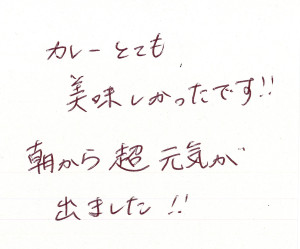 カレーとても
美味しかったです!!
朝から超元気が
出ました!!